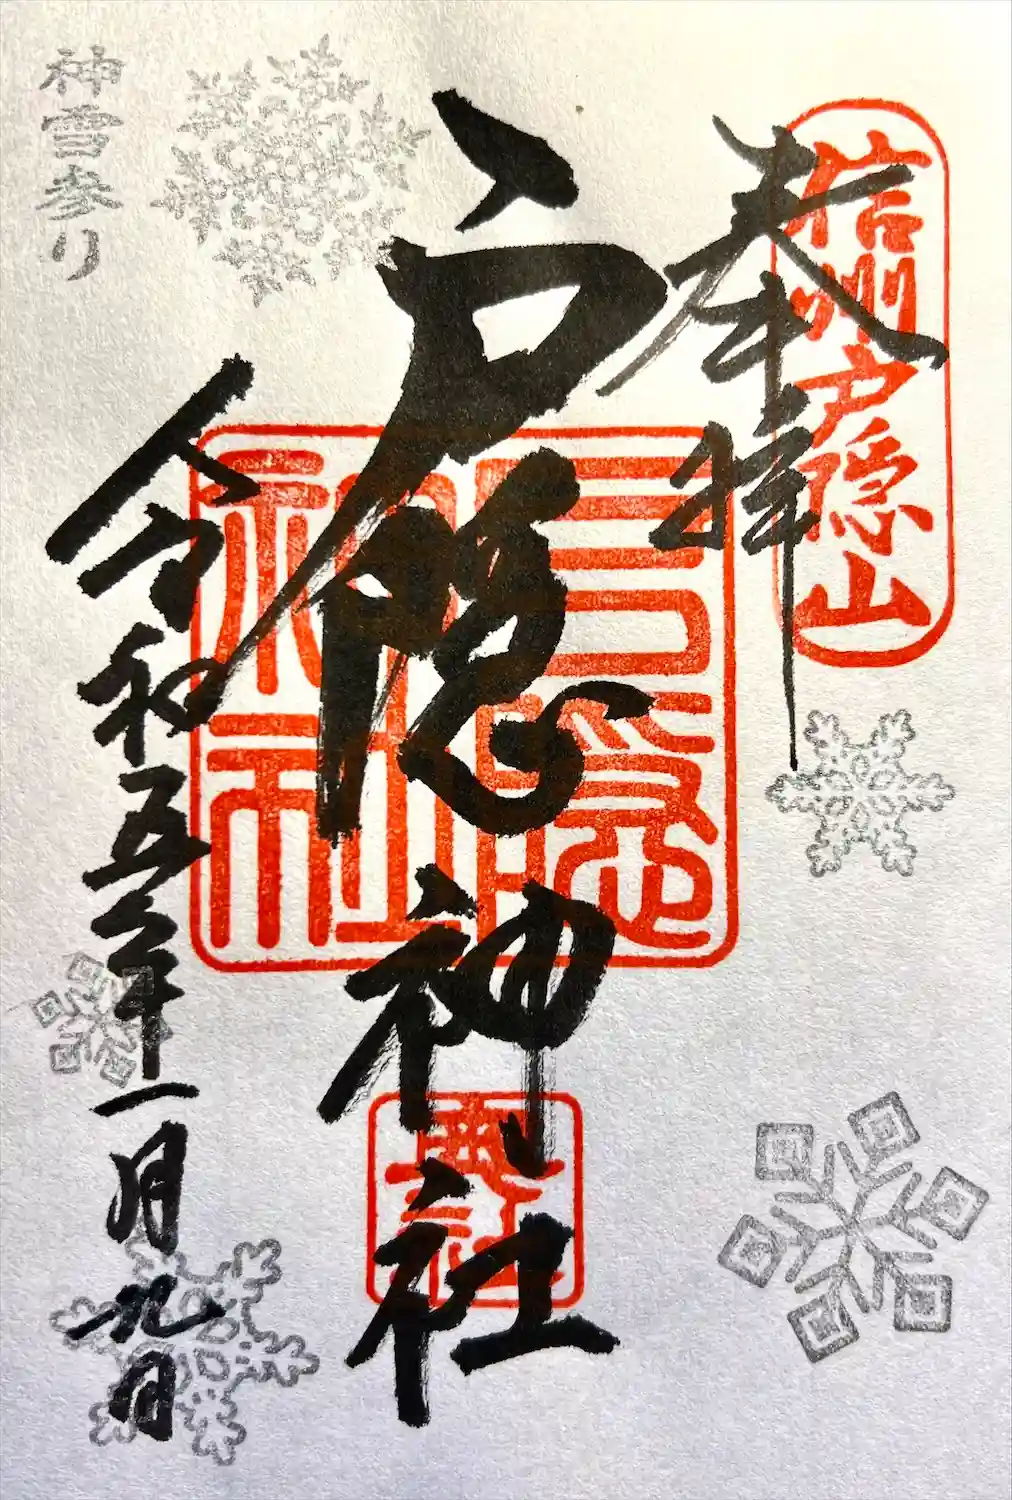 奉拝
信州戸隠山
戸隠神社
戸隠
神社
奥社
令和五年一月九日
神雪参り